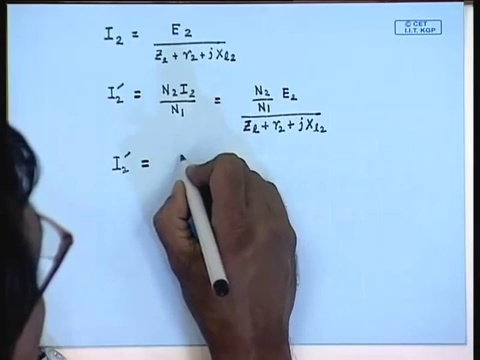 © CET
I.I.T. KGP
I₂ = E₂ / (Z₂ + r₂ + jXl₂)
I₂′ = N₂I₂ / N₁ = (N₂/N₁) E₂ / (Zl + r₂ + jXl₂)
I₂′ =